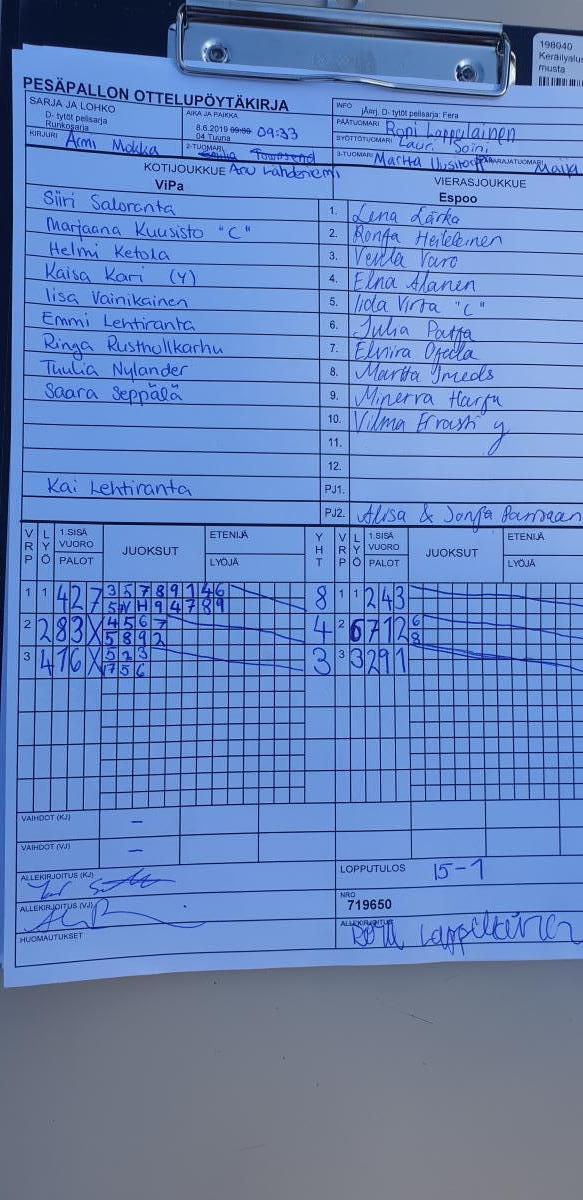 198040
Keräilyalus
musta
PESÄPALLON OTTELUPÖYTÄKIRJA
SARJA JA LOHKO
D- tytöt pelisarja:
Runkosarja
AIKA JA PAIKKA
8.6.2019 09:00 09:33
04 Tuuna
INFO
D- tytöt pelisarja: Fera
PÄÄTUOMARI Roni Lappalainen
SYÖTTÖTUOMARI Lauri Soini
KIRJURI Armi Mokka
2-TUOMARI Anu Lähdeniemi
3-TUOMARI Martta
RAJATUOMARI Maija
KOTIJOUKKUE
ViPa
VIERASJOUKKUE
Espoo
Siiri Saloranta
1. Lena Lärka
Marjaana Kuusisto "C"
2. Ronja
Helmi Ketola
3. Venla Varo
Kaisa Kari (Y)
4. Elna Alanen
Iisa Vainikainen
5. Iida Virta "C"
Emmi Lehtiranta
6. Julia
Ringa Rusthollkarhu
7. Elvira Ojella
Tuulia Nylander
8. Martta
Saara Seppälä
9. Minerva Harju
10. Vilma Errasti y
11.
12.
Kai Lehtiranta
PJ1.
PJ2. Alisa & Sonja
VRP LYÖ 1.SISÄ VUORO PALOT JUOKSUT ETENIJÄ LYÖJÄ YHT VRP LYÖ 1.SISÄ VUORO PALOT JUOKSUT ETENIJÄ LYÖJÄ
1 1 4 2 7 3 5 7 8 9 1 4 6 8 1 1 2 4 3
9 4 7 8 9
2 2 8 3 X 4 5 6 7 4 2 6 7 1 2 6
5 8 9 2 8
3 4 1 6 X 5 2 3 3 3 3 2 9 1
1 7 5 6
VAIHDOT (KJ) –
VAIHDOT (VJ) –
ALLEKIRJOITUS (KJ)
LOPPUTULOS 15-1
ALLEKIRJOITUS (VJ)
NRO
719650
HUOMAUTUKSET
ALLEKIRJOITUS